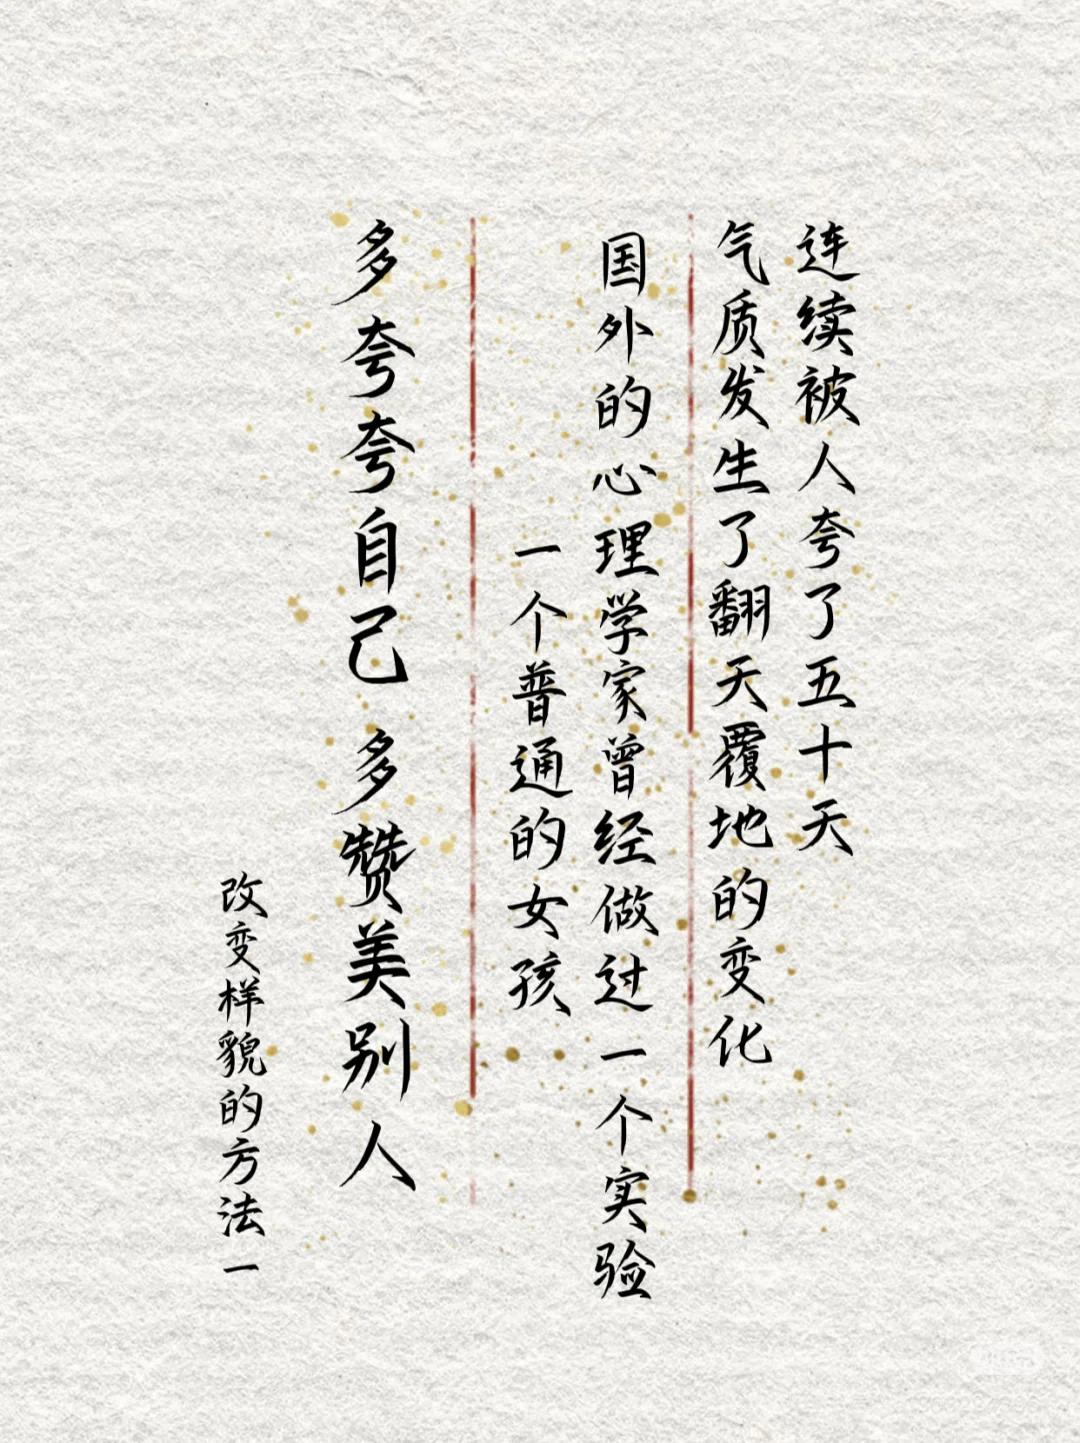 连续被人夸了五十天
气质发生了翻天覆地的变化
国外的心理学家曾经做过一个实验
一个普通的女孩
多夸夸自己 多赞美别人
改变样貌的方法一